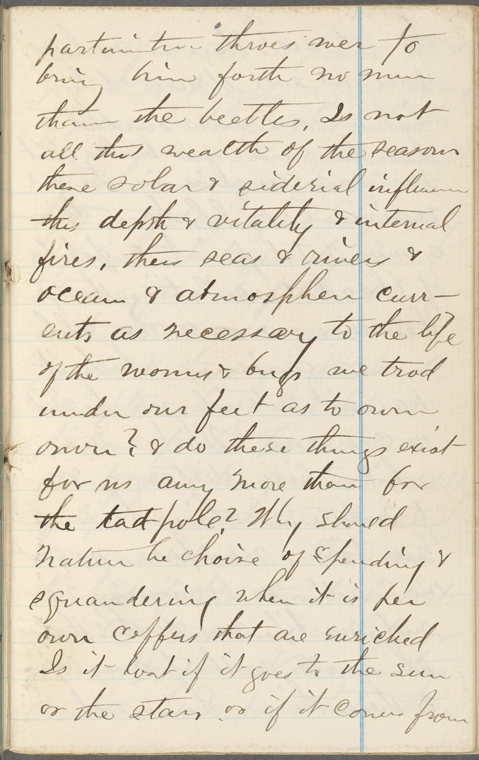 parturition throes were to
bring him forth no more
than the beetles. Is not
all this wealth of the seasons
these solar & siderial influences
this depth & vitality & internal
fires, these seas & rivers &
oceans & atmosphere curr-
ents as necessary to the life
of the worms & bugs we trod
under our feet as to our
own? & do these things exist
for us any more than for
the tadpole? Why should
Nature be choise of spending &
squandering when it is her
own coffers that are enriched
Is it lost if it goes to the sun
or the stars. or if it comes from